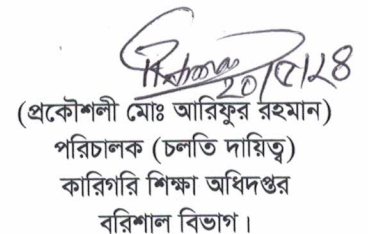 ২০/৫/২৪
(প্রকৌশলী মোঃ আরিফুর রহমান)
পরিচালক (চলতি দায়িত্ব)
কারিগরি শিক্ষা অধিদপ্তর
বরিশাল বিভাগ।